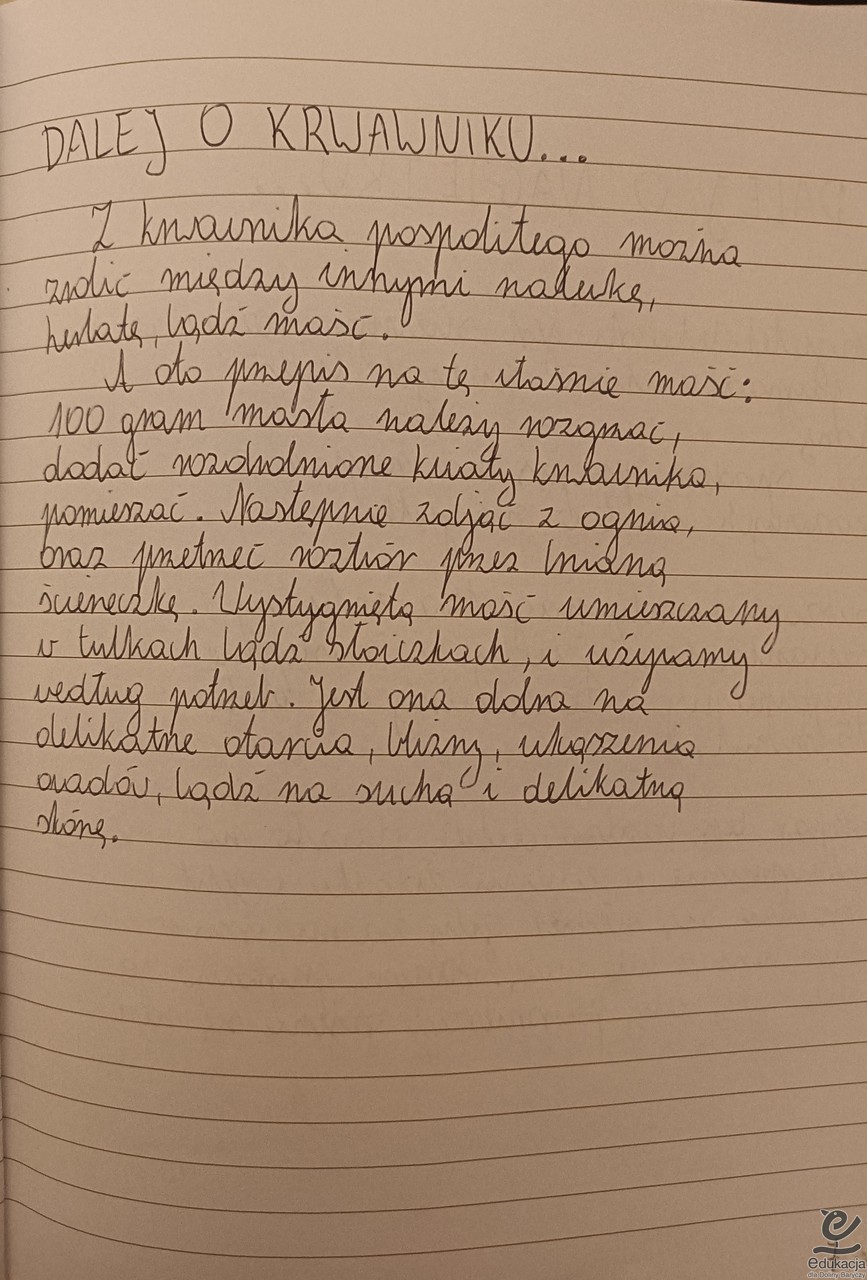 DALEJ O KRWAWNIKU...
Z krwawnika pospolitego można
zrobić między innymi nalewkę,
herbatę, bądź maść.
A oto przepis na tę właśnie maść:
100 gram masła należy rozgrzać,
dodać rozdrobnione kwiaty krwawnika,
pomieszać. Następnie zdjąć z ognia,
oraz przetrzeć roztwór przez lnianą
ściereczkę. Wystygniętą maść umieszczamy
w tubkach bądź słoiczkach, i używamy
według potrzeb. Jest ona dobra na
delikatne otarcia, blizny, ukąszenia
owadów, bądź na suchą i delikatną
skórę.
edukacja
dla Doliny Baryczy